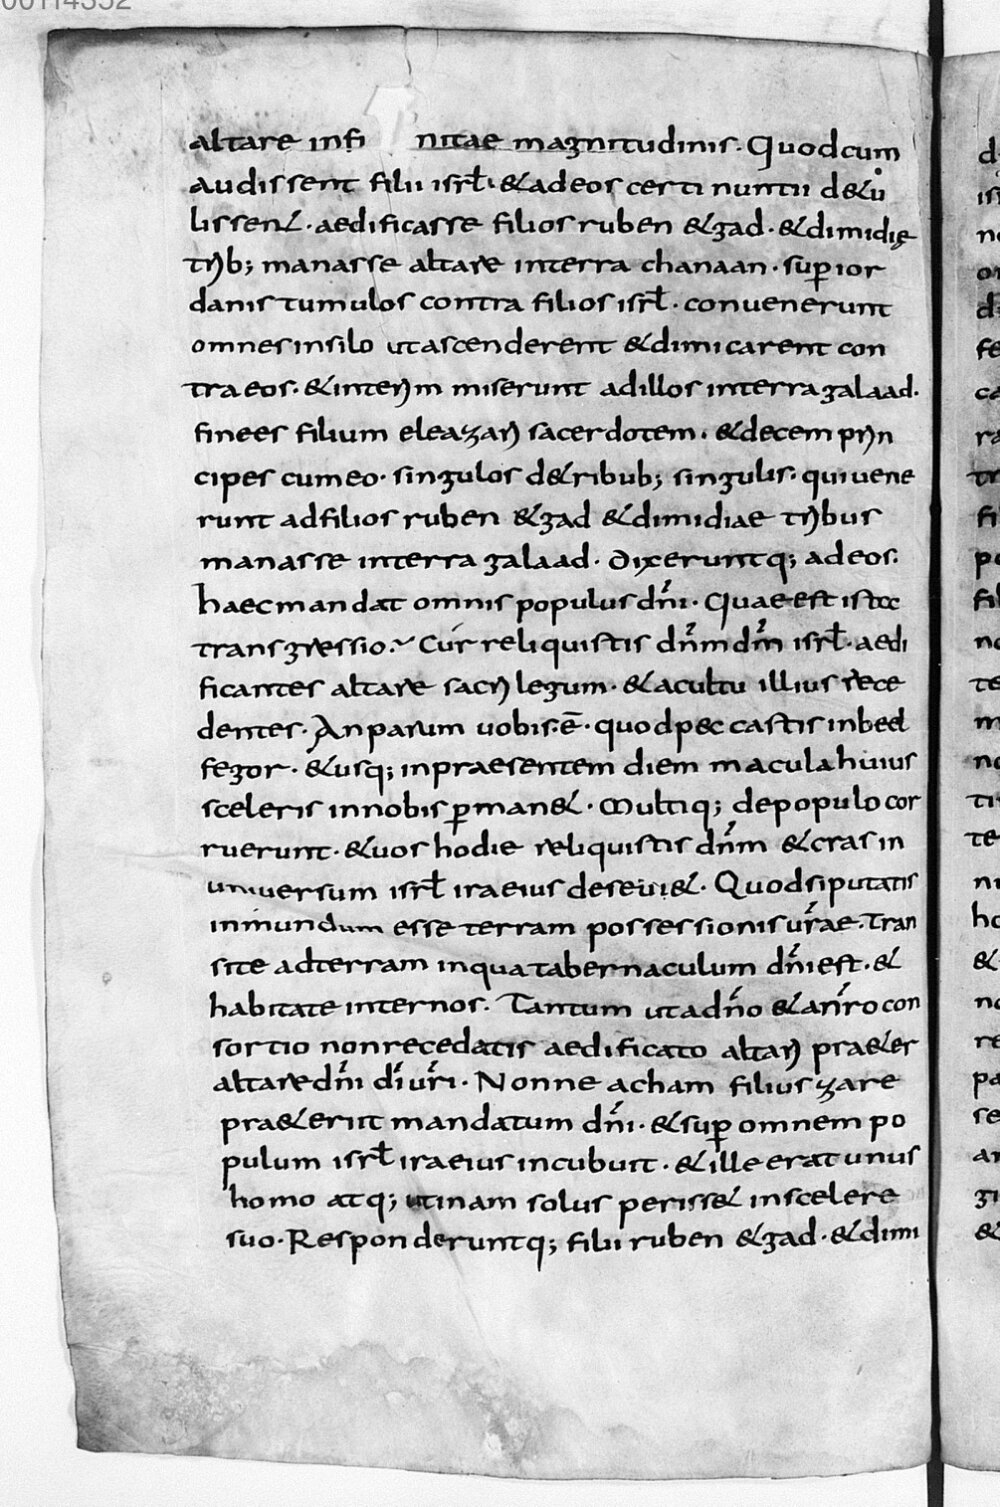 00114352
altare infi nitae magnitudinis. Quodcum
audissent filii isrł. &adeos certi nuntii d&u
lissen&. aedificasse filios ruben &gad. &dimidię
trib; manasse altare interra chanaan. sup ior
danis tumulos contra filios isrł. convenerunt
omnes insilo utascenderent &dimicarent con
tra eos. &interim miserunt adillos interra galaad.
finees filium eleazari sacerdotem. &decem prin
cipes cumeo. singulos d&ribub; singulis. quivene
runt adfilios ruben &gad &dimidiae tribus
manasse interra galaad. dixeruntq; adeos.
haecmandat omnis populus dñi. Quae est istec
transgressio? Cur reliquistis dñm dm̃ isrł. aedi
ficantes altare sacrilegum. &acultu illius rece
dentes. An parum uobis.ē. quodpeccastis inbeel
fegor. &usq; inpraesentem diem macula huius
sceleris innobis pman&. Multiq; depopulo cor
ruerunt. &uos hodie reliquistis dñm &cras in
universum isrł iraeius deseui&. Quodsiputatis
inmundum esse terram possessionis ur̃ae. Tran
site adterram inqua tabernaculum dñi est. &
habitate internos. Tantum utadño &anr̃o con
sortio nonrecedatis aedificato altari pra&er
altare dñi dĩ ur̃i. Nonne acham filius zare
pra&eriit mandatum dñi. &sup omnem po
pulum isrł iraeius incubuit. &ille erat unus
homo atq; utinam solus periss& inscelere
suo. Responderuntq; filii ruben &gad. &dimi